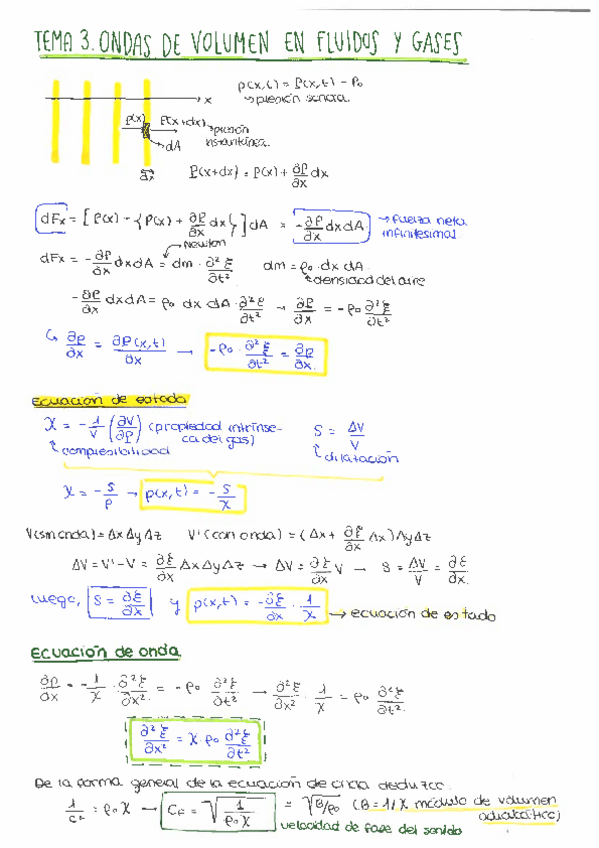 TEMA 3. ONDAS DE VOLUMEN EN FLUIDOS Y GASES
p(x,t) = P(x,t) - P₀
→ presión sonora.
x
P(x) P(x+dx) → presión instantánea.
→ dA
dx
P(x+dx) = P(x) + ∂P/∂x dx
dFx = [P(x) - {P(x) + ∂P/∂x dx}] dA = -∂P/∂x dx dA → fuerza neta infinitesimal
Newton
dFx = -∂P/∂x dx dA = dm · ∂²ξ/∂t² dm = ρ₀ · dx dA
densidad del aire
-∂P/∂x dx dA = ρ₀ dx dA · ∂²ξ/∂t² → ∂P/∂x = -ρ₀ ∂²ξ/∂t²
↳ ∂p/∂x = ∂P(x,t)/∂x → -ρ₀ · ∂²ξ/∂t² = ∂p/∂x.
Ecuación de estado
χ = -1/V (∂V/∂P) (propiedad intrínseca del gas) S = ΔV/V
compresibilidad dilatación
χ = -S/p → p(x,t) = -S/χ
V(sin onda) = Δx Δy Δz V'(con onda) = (Δx + ∂ξ/∂x Δx) Δy Δz
ΔV = V' - V = ∂ξ/∂x Δx Δy Δz → ΔV = ∂ξ/∂x V → S = ΔV/V = ∂ξ/∂x.
Luego, S = ∂ξ/∂x y p(x,t) = -∂ξ/∂x · 1/χ → ecuación de estado
Ecuación de onda
∂p/∂x = -1/χ · ∂²ξ/∂x² = -ρ₀ ∂²ξ/∂t² → ∂²ξ/∂x² · 1/χ = ρ₀ ∂²ξ/∂t².
∂²ξ/∂x² = χ · ρ₀ ∂²ξ/∂t²
De la forma general de la ecuación de onda deduzco:
1/c² = ρ₀ χ → CF = √(1/(ρ₀ χ)) = √(B/ρ₀) (B = 1/χ módulo de volumen adiabático)
velocidad de fase del sonido